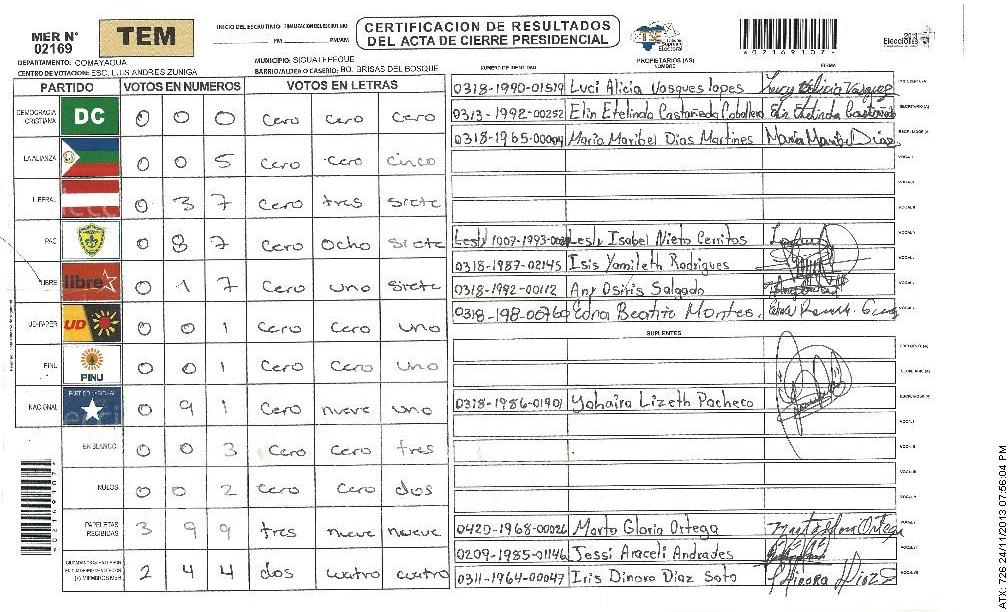 MER N° 02169
TEM
INICIO DEL ESCRUTINIO:
PM PM/AM
CERTIFICACION DE RESULTADOS
DEL ACTA DE CIERRE PRESIDENCIAL
TSE
Tribunal Supremo Electoral
Elecciones
DEPARTAMENTO: COMAYAGUA
MUNICIPIO: SIGUATEPEQUE
CENTRO DE VOTACION: ESC. LUIS ANDRES ZUNIGA
BARRIO/ALDEA O CASERIO: BO. BRISAS DEL BOSQUE
PARTIDO VOTOS EN NUMEROS VOTOS EN LETRAS
DEMOCRACIA CRISTIANA DC 0 0 0 Cero Cero Cero
LA ALIANZA 0 0 5 Cero Cero cinco
LIBERAL 0 3 7 Cero tres siete
PAC 0 8 7 Cero Ocho siete
LIBRE libre 0 1 7 Cero uno siete
UD-FAPER UD 0 0 1 Cero Cero uno
PINU PINU 0 0 1 Cero Cero uno
NACIONAL PARTIDO NACIONAL 0 9 1 Cero nueve uno
EN BLANCO 0 0 3 Cero Cero tres
NULOS 0 0 2 Cero Cero dos
PAPELETAS RECIBIDAS 3 9 9 tres nueve nueve
2 4 4 dos cuatro cuatro
NUMERO DE IDENTIDAD PROPIETARIOS (AS) NOMBRE FIRMA
0318-1990-01519 Luci Alicia Vasques lopes
0313-1992-00252 Elin Etelinda Castañeda Caballero
0318-1965-00004 Maria Maribel Dias Martines Maria Maribel Dias
Lesly 1007-1993- Lesly Isabel Nieto Cerritos
0318-1987-02145 Isis Yamileth Rodrigues
0318-1992-00112 Any Osiris Salgado
0318-198-00760 Edna Beatriz Montes.
SUPLENTES
0318-1986-01901 Yahaira Lizeth Pacheco
0420-1968-00026 Marta Gloria Ortega
0209-1985-01146 Jessi Araceli Andrades
0311-1964-00047 Iris Dinora Diaz Soto
ATX 726 24/11/2013 07:56:04 PM